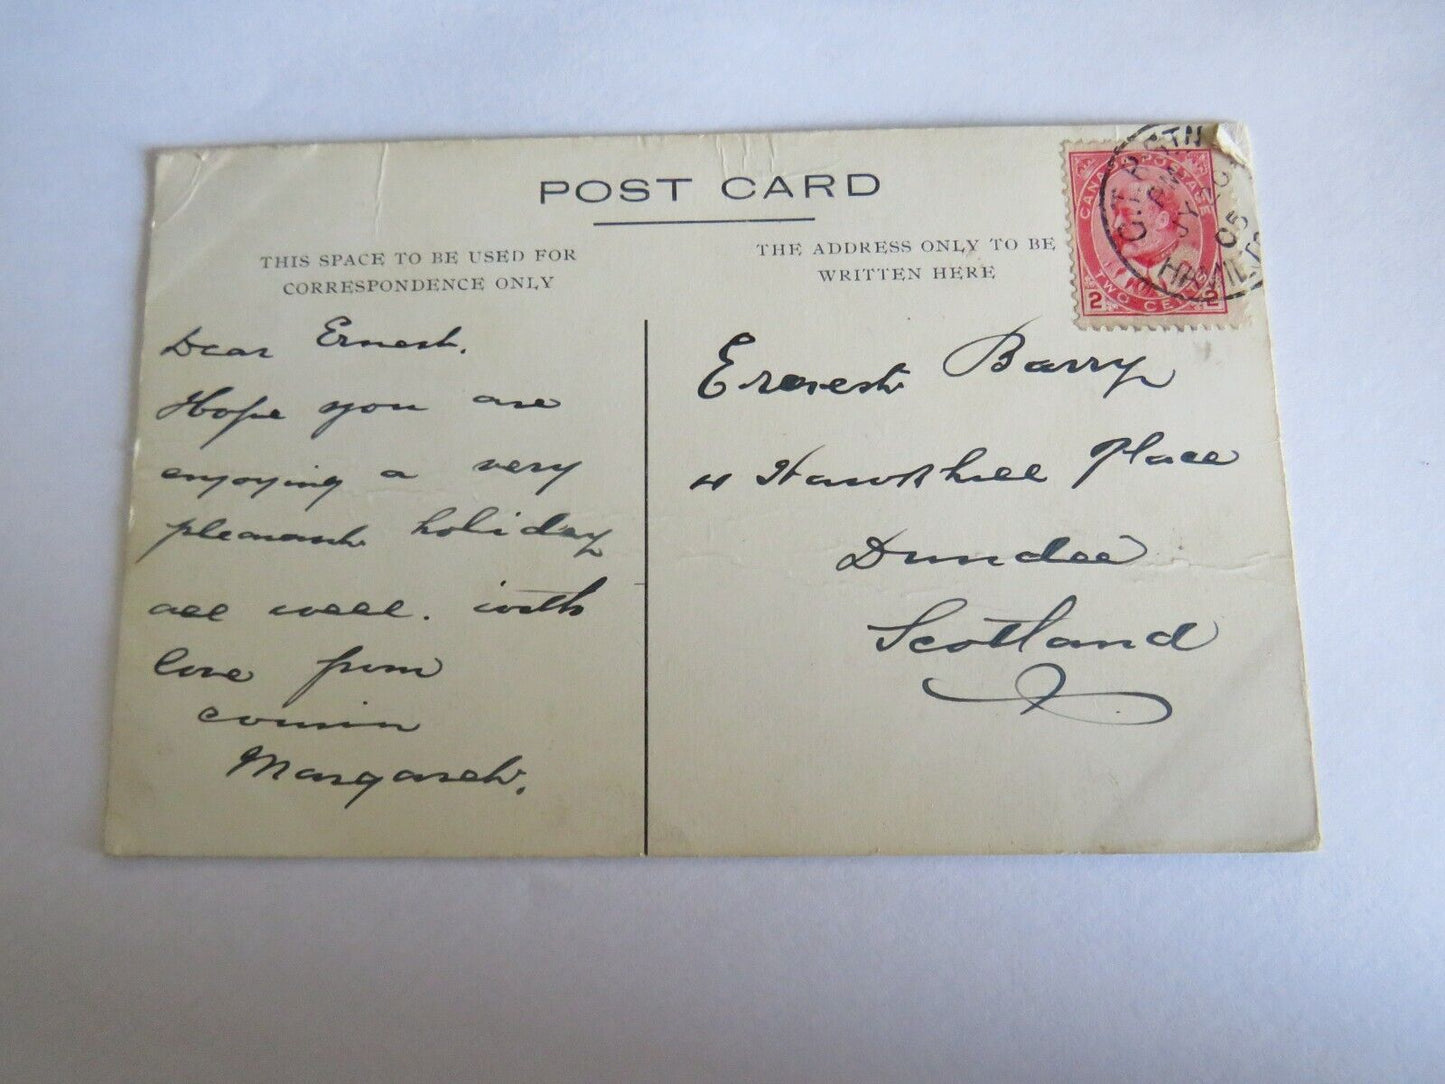 POST CARD
THIS SPACE TO BE USED FOR
CORRESPONDENCE ONLY
THE ADDRESS ONLY TO BE
WRITTEN HERE
Dear Ernest.
Hope you are
enjoying a very
pleasant holiday
all well. with
love from
cousin
Margaret.
Ernest Barry
4 Hawkhill Place
Dundee
Scotland
CANADA POSTAGE
2 TWO CENTS 2
G.T.R. STN
PM
JY
05
HAMILTON